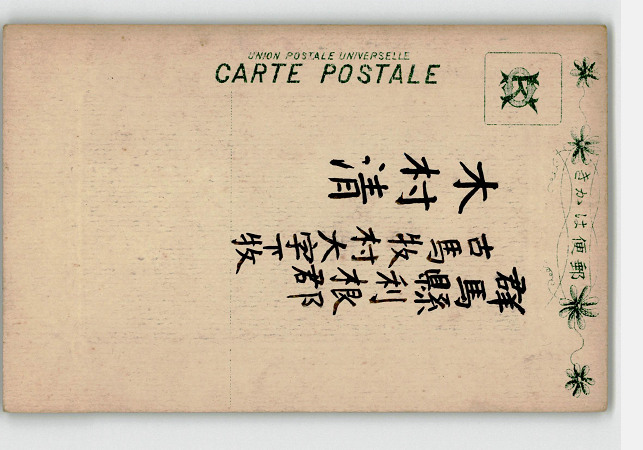 UNION POSTALE UNIVERSELLE
CARTE POSTALE
郵便はかき
群馬縣利根郡
古馬牧村大字下牧
木村清